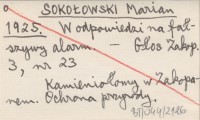 SOKOŁOWSKI Marian
1925. W odpowiedzi na fał-
szywy alarm. – Głos Zakop.
3, nr 23
Kamieniołomy w Zakopa-
nem. Ochrona przyrody.